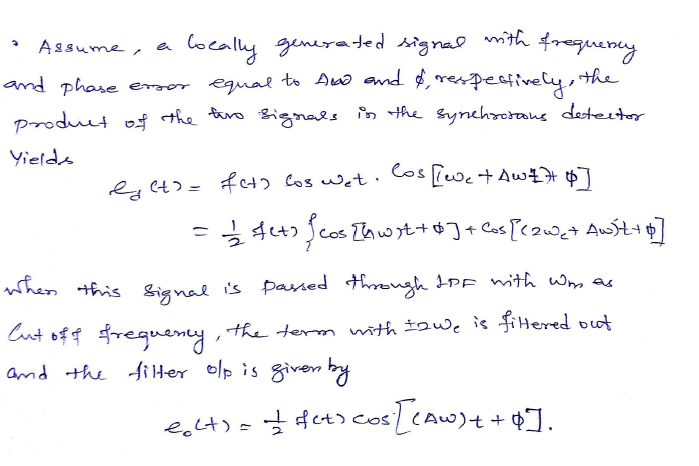 • Assume, a locally generated signal with frequency
and phase error equal to Δω and φ, respectively, the
product of the two signals in the synchronous detector
Yields
e_d(t) = f(t) cos ω_c t . Cos [(ω_c + Δω)t + φ]
= 1/2 f(t) {cos [(Δω)t + φ] + Cos [(2ω_c + Δω)t + φ]
when this signal is passed through LPF with ω_m as
Cut off frequency, the term with ±2ω_c is filtered out
and the filter o/p is given by
e_o(t) = 1/2 f(t) cos [(Δω)t + φ].